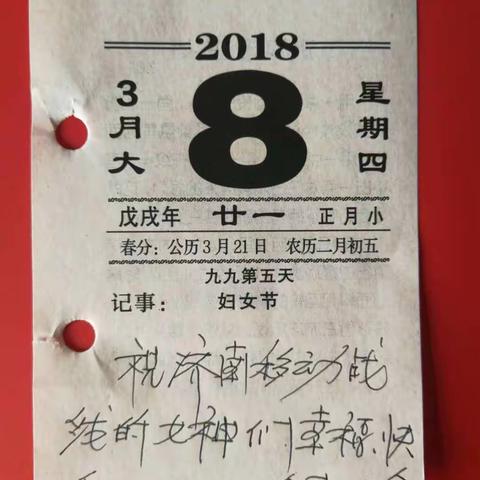 2018
3月大 8 星期四
戊戌年 廿一 正月小
春分：公历3月21日 农历二月初五
九九第五天
记事： 妇女节
祝济南移动战
线的女神们幸福快